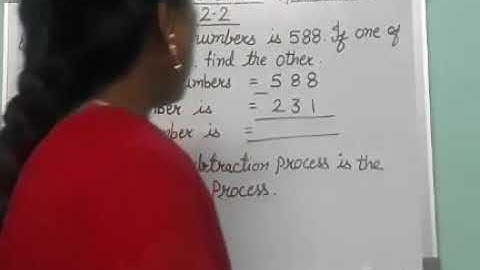 2.2
numbers is 588. If one of
find the other.
numbers = 588
ber is = 231
ber is =
btraction process is the
Process.